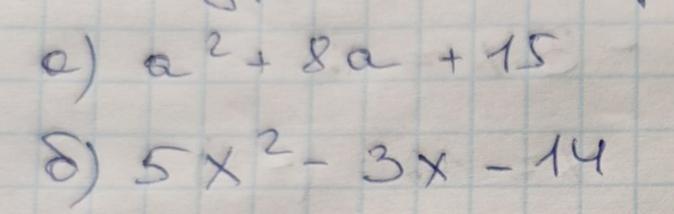 а) a² + 8a + 15
б) 5x² - 3x - 14